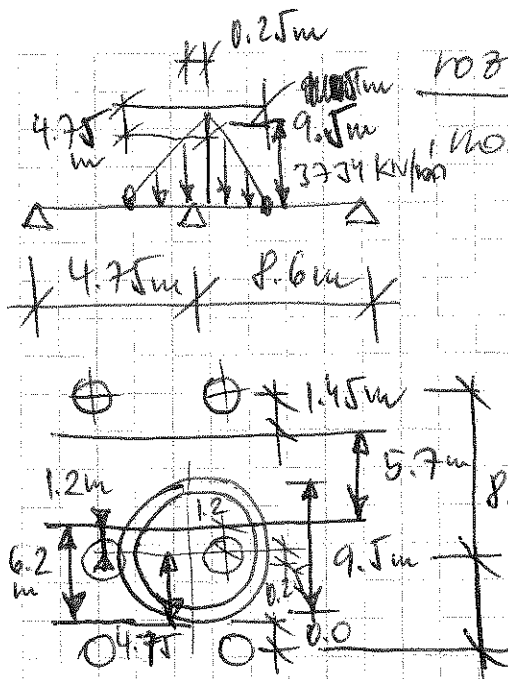 0.25m
4.75
m
9.5m
37.34 KN/m
4.75m
8.6m
1.45m
5.7m
8.
1.2m
1.2
6.2
m
9.5m
0.25
0.0
4.75